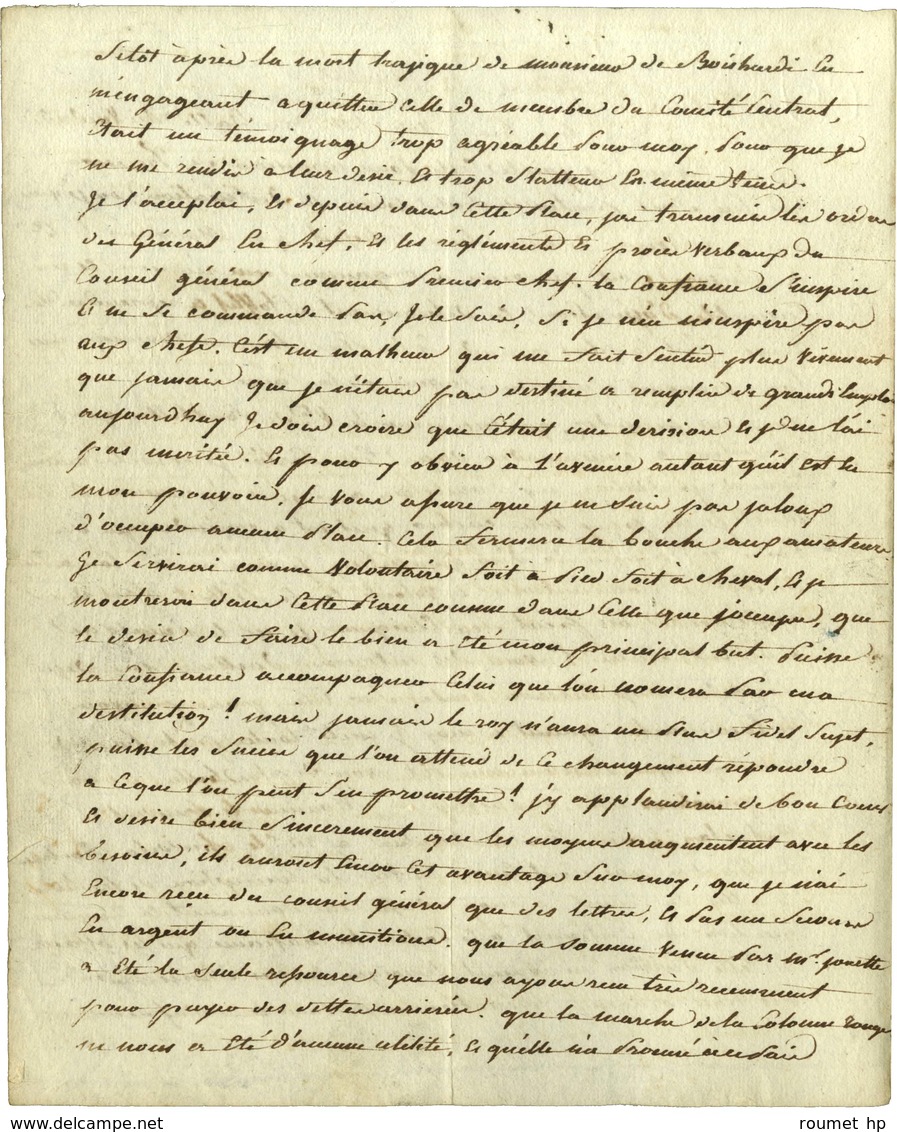 Sitôt après la mort tragique de monsieur de Boishardi En
m'engageant a quitter celle de membre du Comité Central,
Etait un témoignage trop agréable pour moy, pour que je
ne me rendis a leur desir, Et trop flatteur En même tems.
Je l'acceptai, Et depuis dans Cette place, j'ai transmis les ordres
des Général En chef, Et les réglements Et procès verbaux du
Conseil général comme premier chef. la Confiance s'inspire
Et ne se commande pas, Je le sais, Si je n'en n'inspire pas
aux chefs. C'est un malheur qui me fait sentir plus vivement
que jamais que je n'étais pas destiné a remplir de grands Emplois
aujourdhuy Je dois croire que C'était une derision Et je ne l'ai
pas meritée. Et pour y obvier à l'avenir autant qu'il est En
mon pouvoir, Je vous assure que je ne suis pas jaloux
d'occuper aucune place. Cela fermera la bouche aux amateurs
Je servirai comme Volontaire soit a pied soit à cheval, Et je
montrerai dans Cette place comme dans Celle que j'occupe, que
le desir de faire le bien a Eté mon principal but. Puisse
la Confiance accompagner Celui que l'on nomera par ma
destitution! mais jamais le roy n'aura un plus fidel Sujet,
puisse les succès que l'on attend de Ce changement répondre
a Ce que l'on peut s'en promettre! j'y applaudirai de bon Coeur
Et desire bien sincerement que les moyens augmentent avec les
besoins, ils auront Encor Cet avantage sur moy, que je n'ai
Encore reçu du conseil général que des lettres, Et pas un secours
En argent ou En munitions. que la somme venue par Mr. jouette
a Eté la seule ressource que nous ayons reçu très recemment
pour payer des dettes arrierées. que la marche de la Colonne rouge
ne nous a Eté d'aucune utilité, Et qu'elle n'a